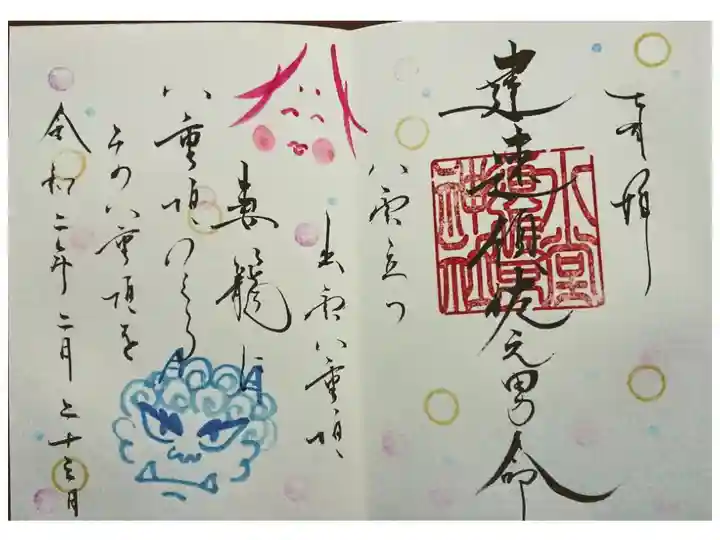 奉拝
建速須佐之男命
水堂
神社
八雲立つ
出雲八重垣
妻籠に
八重垣つくる
その八重垣を
令和二年二月二十三日